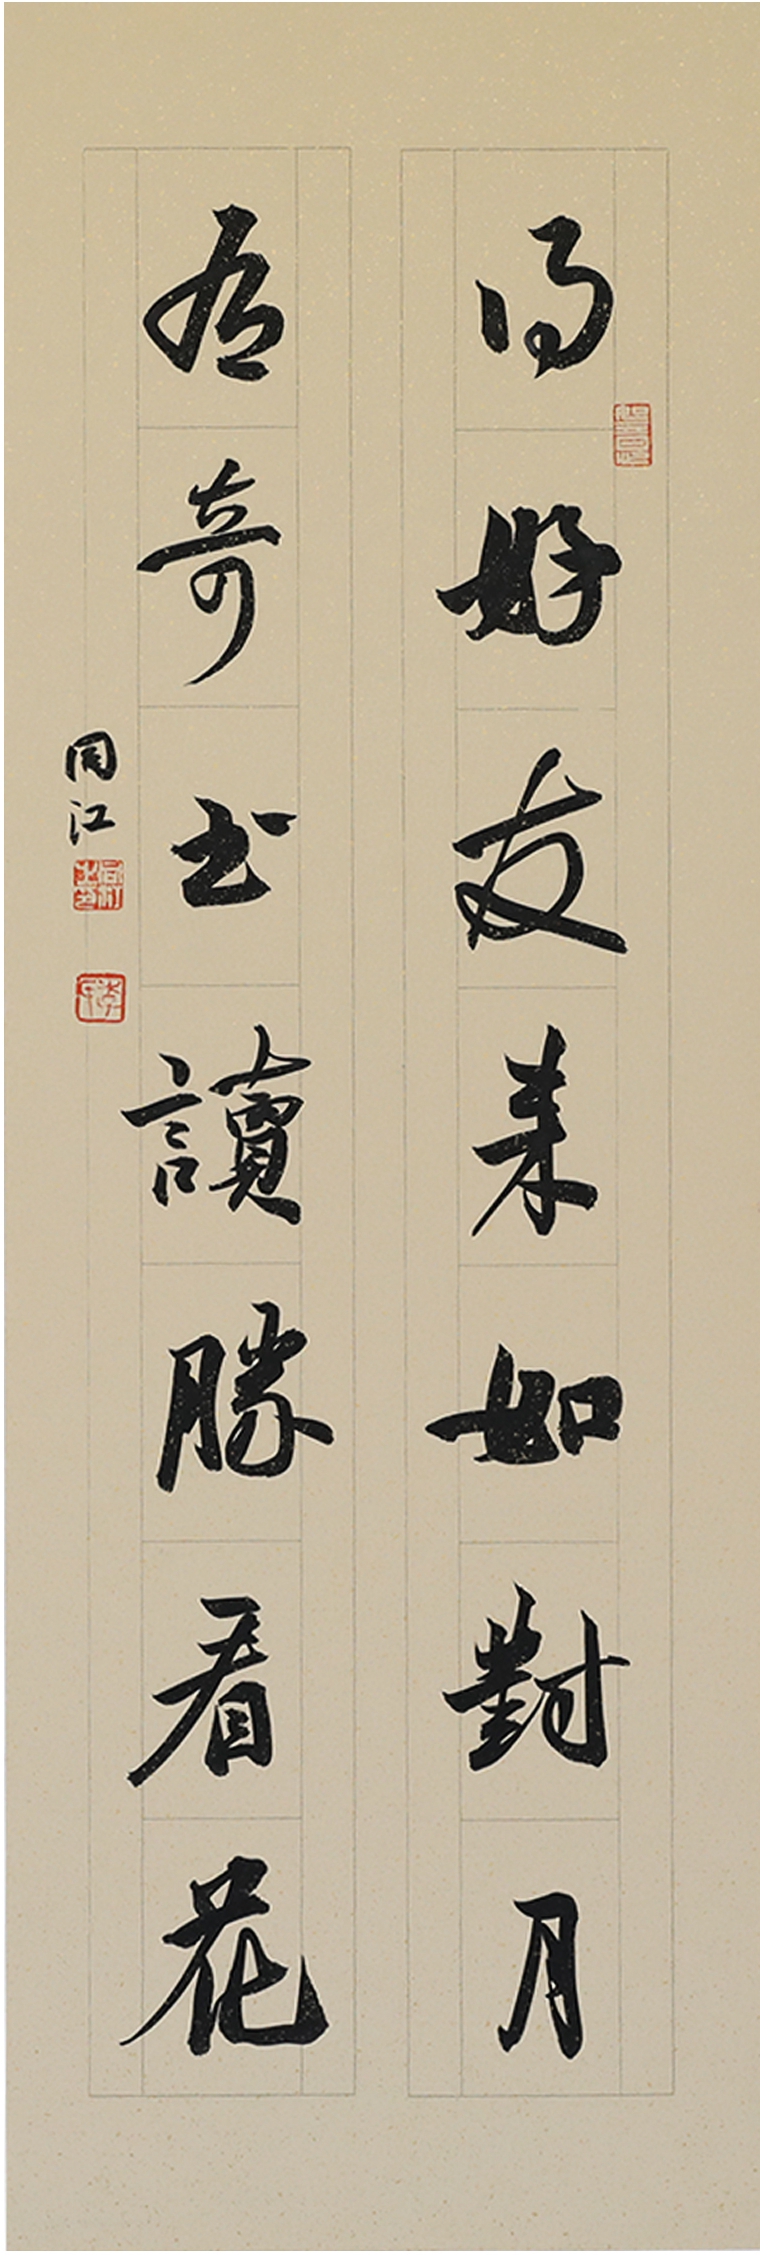 得好友来如對月
有奇书讀勝看花
同江